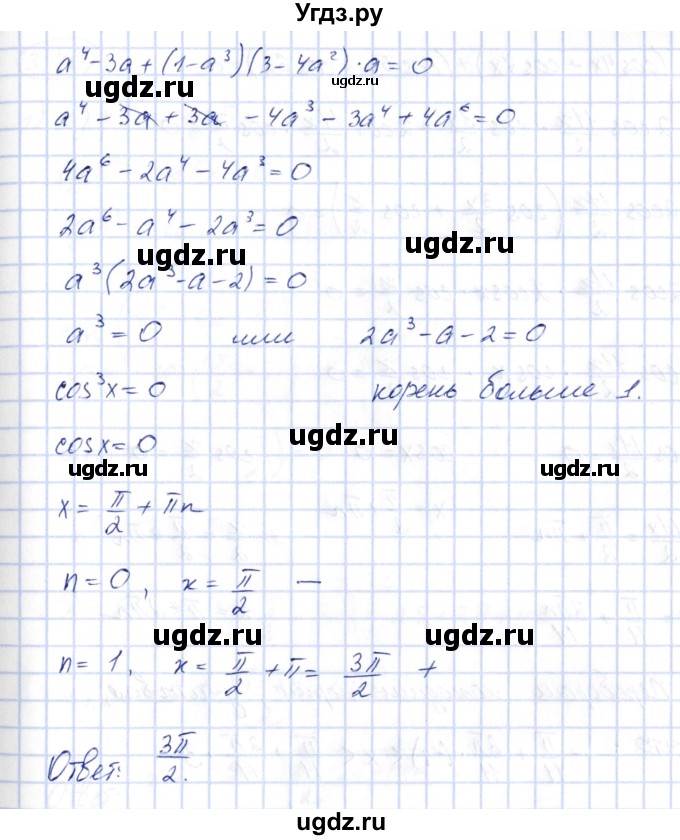 Угдз.ру
a⁴ - 3a + (1 - a³)(3 - 4a²)·a = 0
ugdz.ru
ugdz.ru
a⁴ - 3a + 3a - 4a³ - 3a⁴ + 4a⁶ = 0
4a⁶ - 2a⁴ - 4a³ = 0
2a⁶ - a⁴ - 2a³ = 0
ugdz.ru
ugdz.ru
a³(2a³ - a - 2) = 0
a³ = 0 или 2a³ - a - 2 = 0
cos³x = 0 корень больше 1.
ugdz.ru
cosx = 0
ugdz.ru
ugdz.ru
x = π/2 + πn
n = 0, x = π/2 —
ugdz.ru
ugdz.ru
n = 1, x = π/2 + π = 3π/2 +
Ответ: 3π/2.
ugdz.ru
ugdz.ru